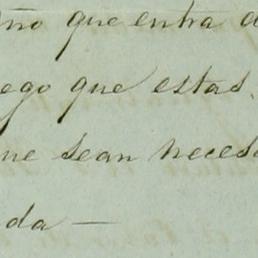 Año que entra d
ego que estas.
ue sean necesa
da —